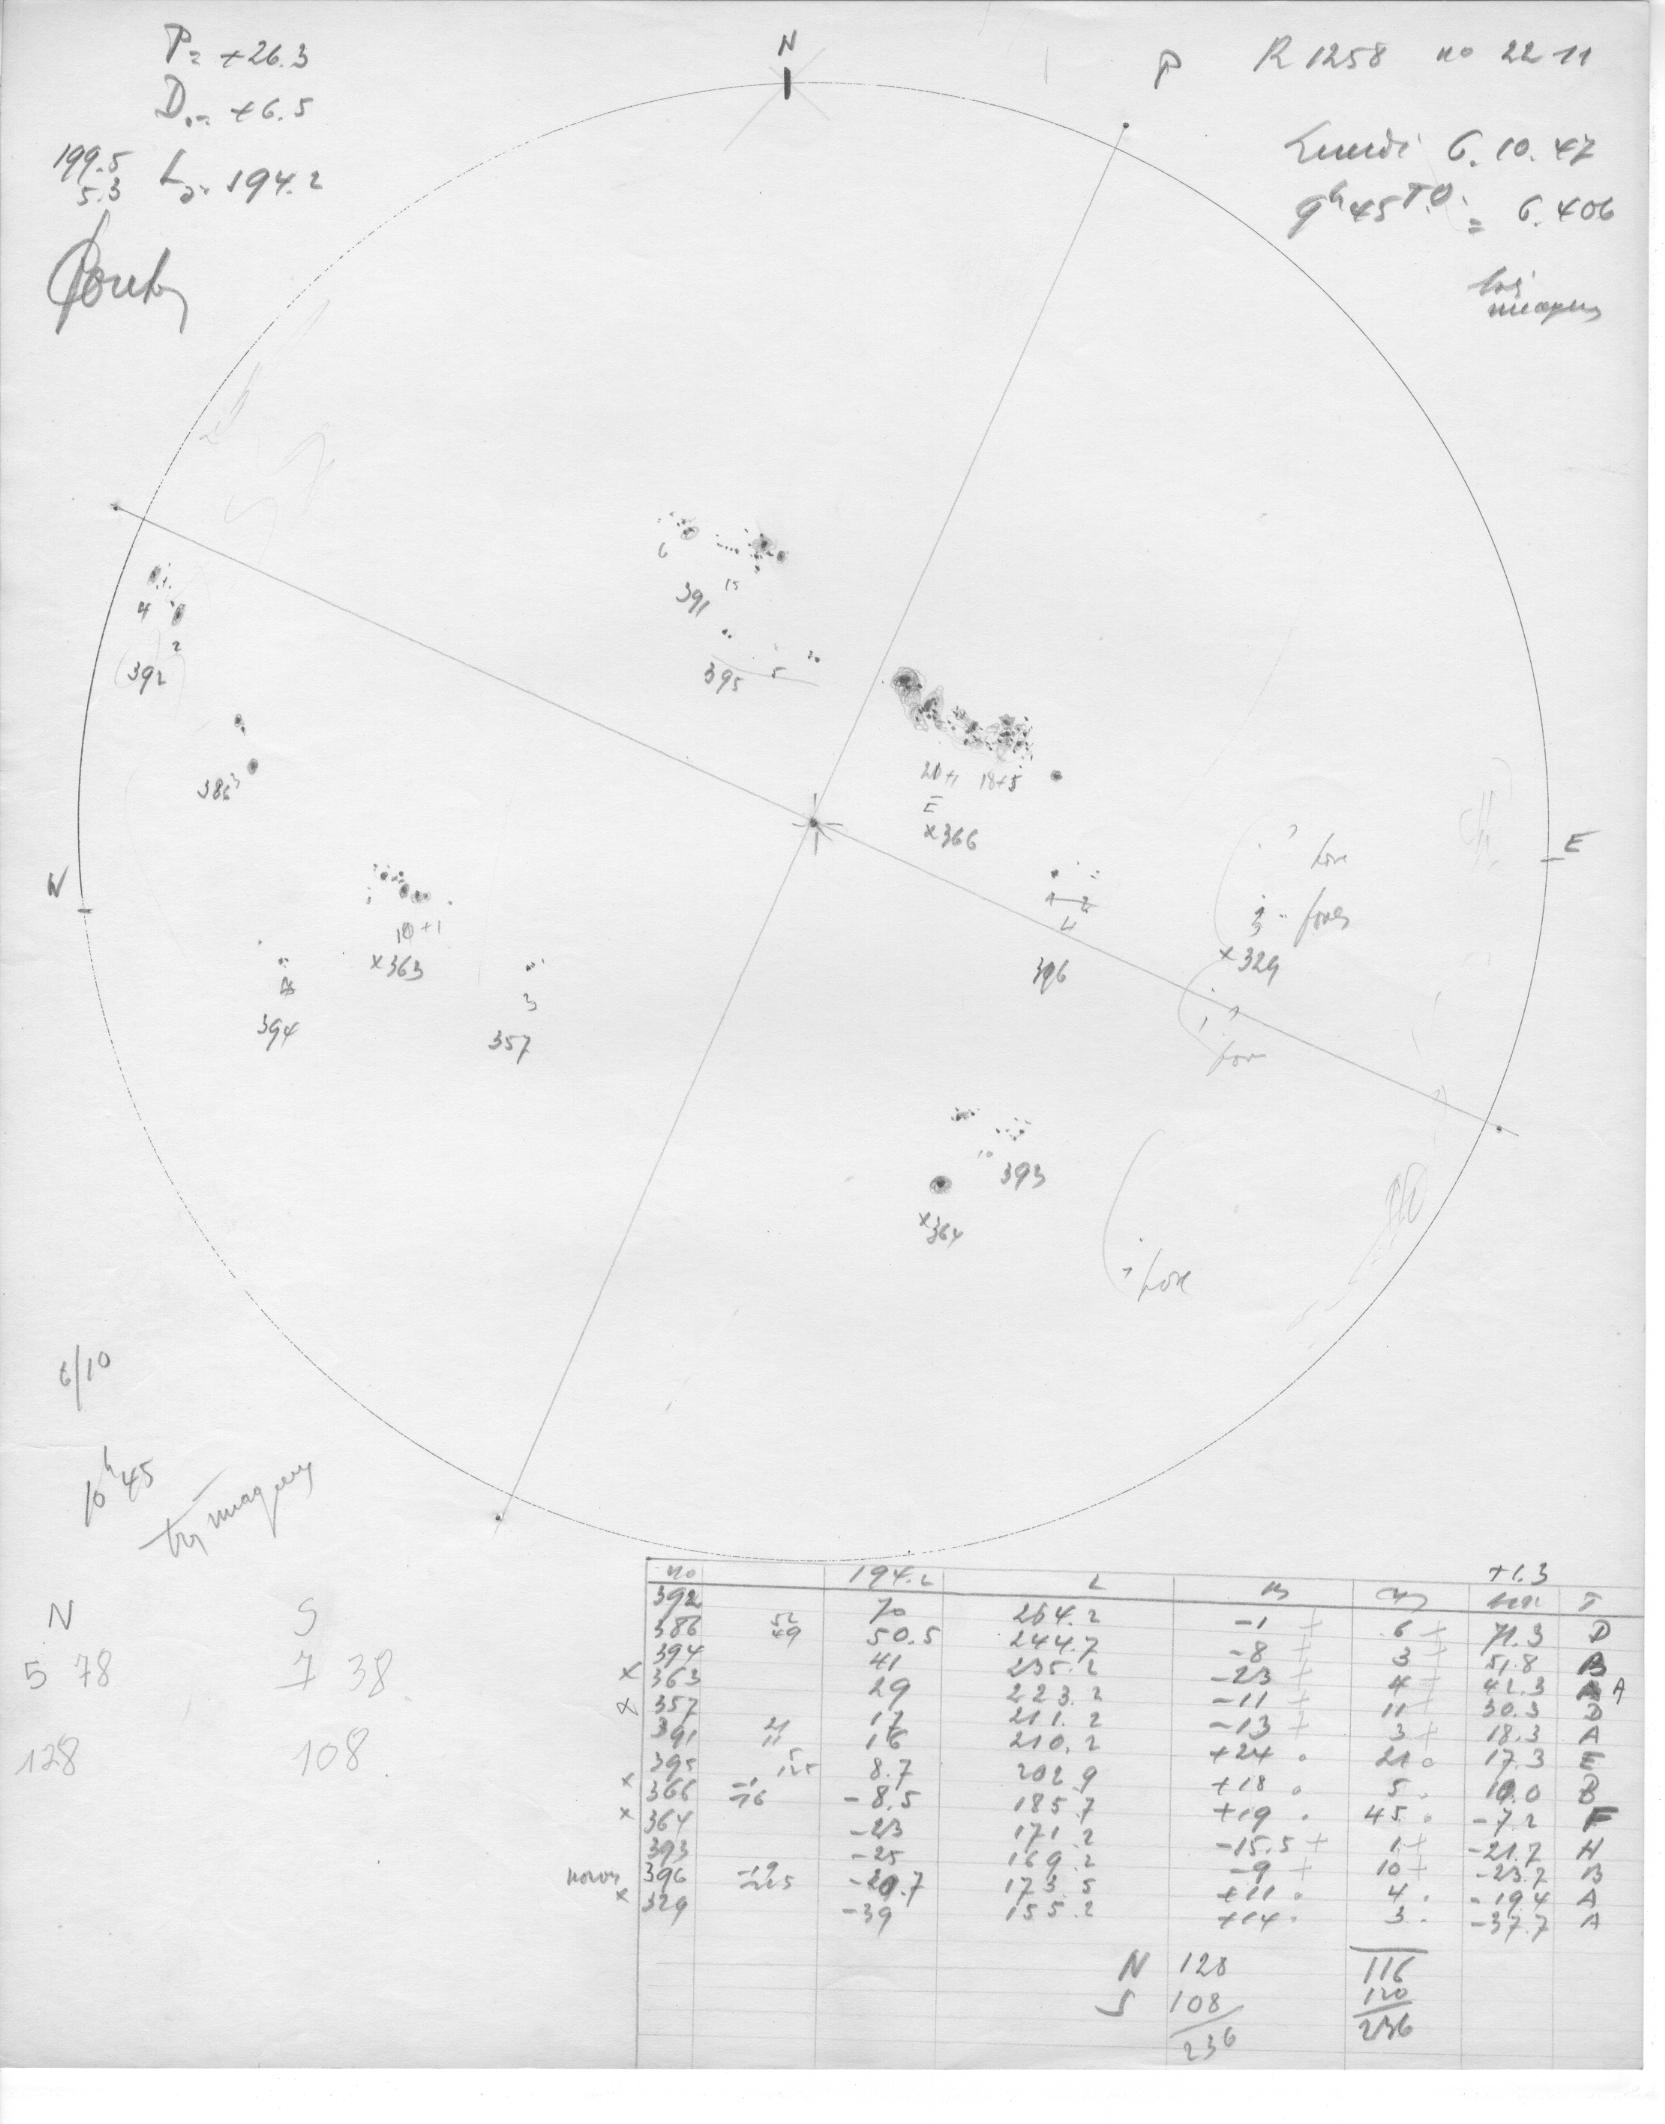 P= +26.3
D.= +6.5
199.5
5.3
L = 194.2
N
P
R 1258 no 22 11
Lundi 6.10.47
9h45 T.O. = 6.406
6
391
15
4
2
392
395
5
386
3
20+1 18+5
E
x366
W
E
10+1
x363
4
394
3
357
1 2
4
396
pore
3
pores
x329
pore
10
393
x364
pore
6/10
10h45
N S
5 78 7 38
128 108
no 194.2 L +1.3 T
392 70 264.2 -1 + 6 + 71.3 D
386 52 49 50.5 244.7 -8 + 3 + 51.8 B
394 41 235.2 -23 + 4 + 42.3 A A
x 363 29 223.2 -11 + 11 + 30.3 D
x 357 17 211.2 -13 + 3 + 18.3 A
391 21 11 16 210.2 +24 . 21 . 17.3 E
395 5 12.5 8.7 202.9 +18 . 5 . 10.0 B
x 366 -1 -16 -8.5 185.7 +19 . 45 . -7.2 F
x 364 -23 171.2 -15.5 + 1 + -21.7 H
393 -25 169.2 -9 + 10 + -23.7 B
396 -19 -22.5 -20.7 173.5 +11 . 4 . -19.4 A
x 329 -39 155.2 +14 . 3 . -37.7 A
N 128 116
S 108 120
236 236